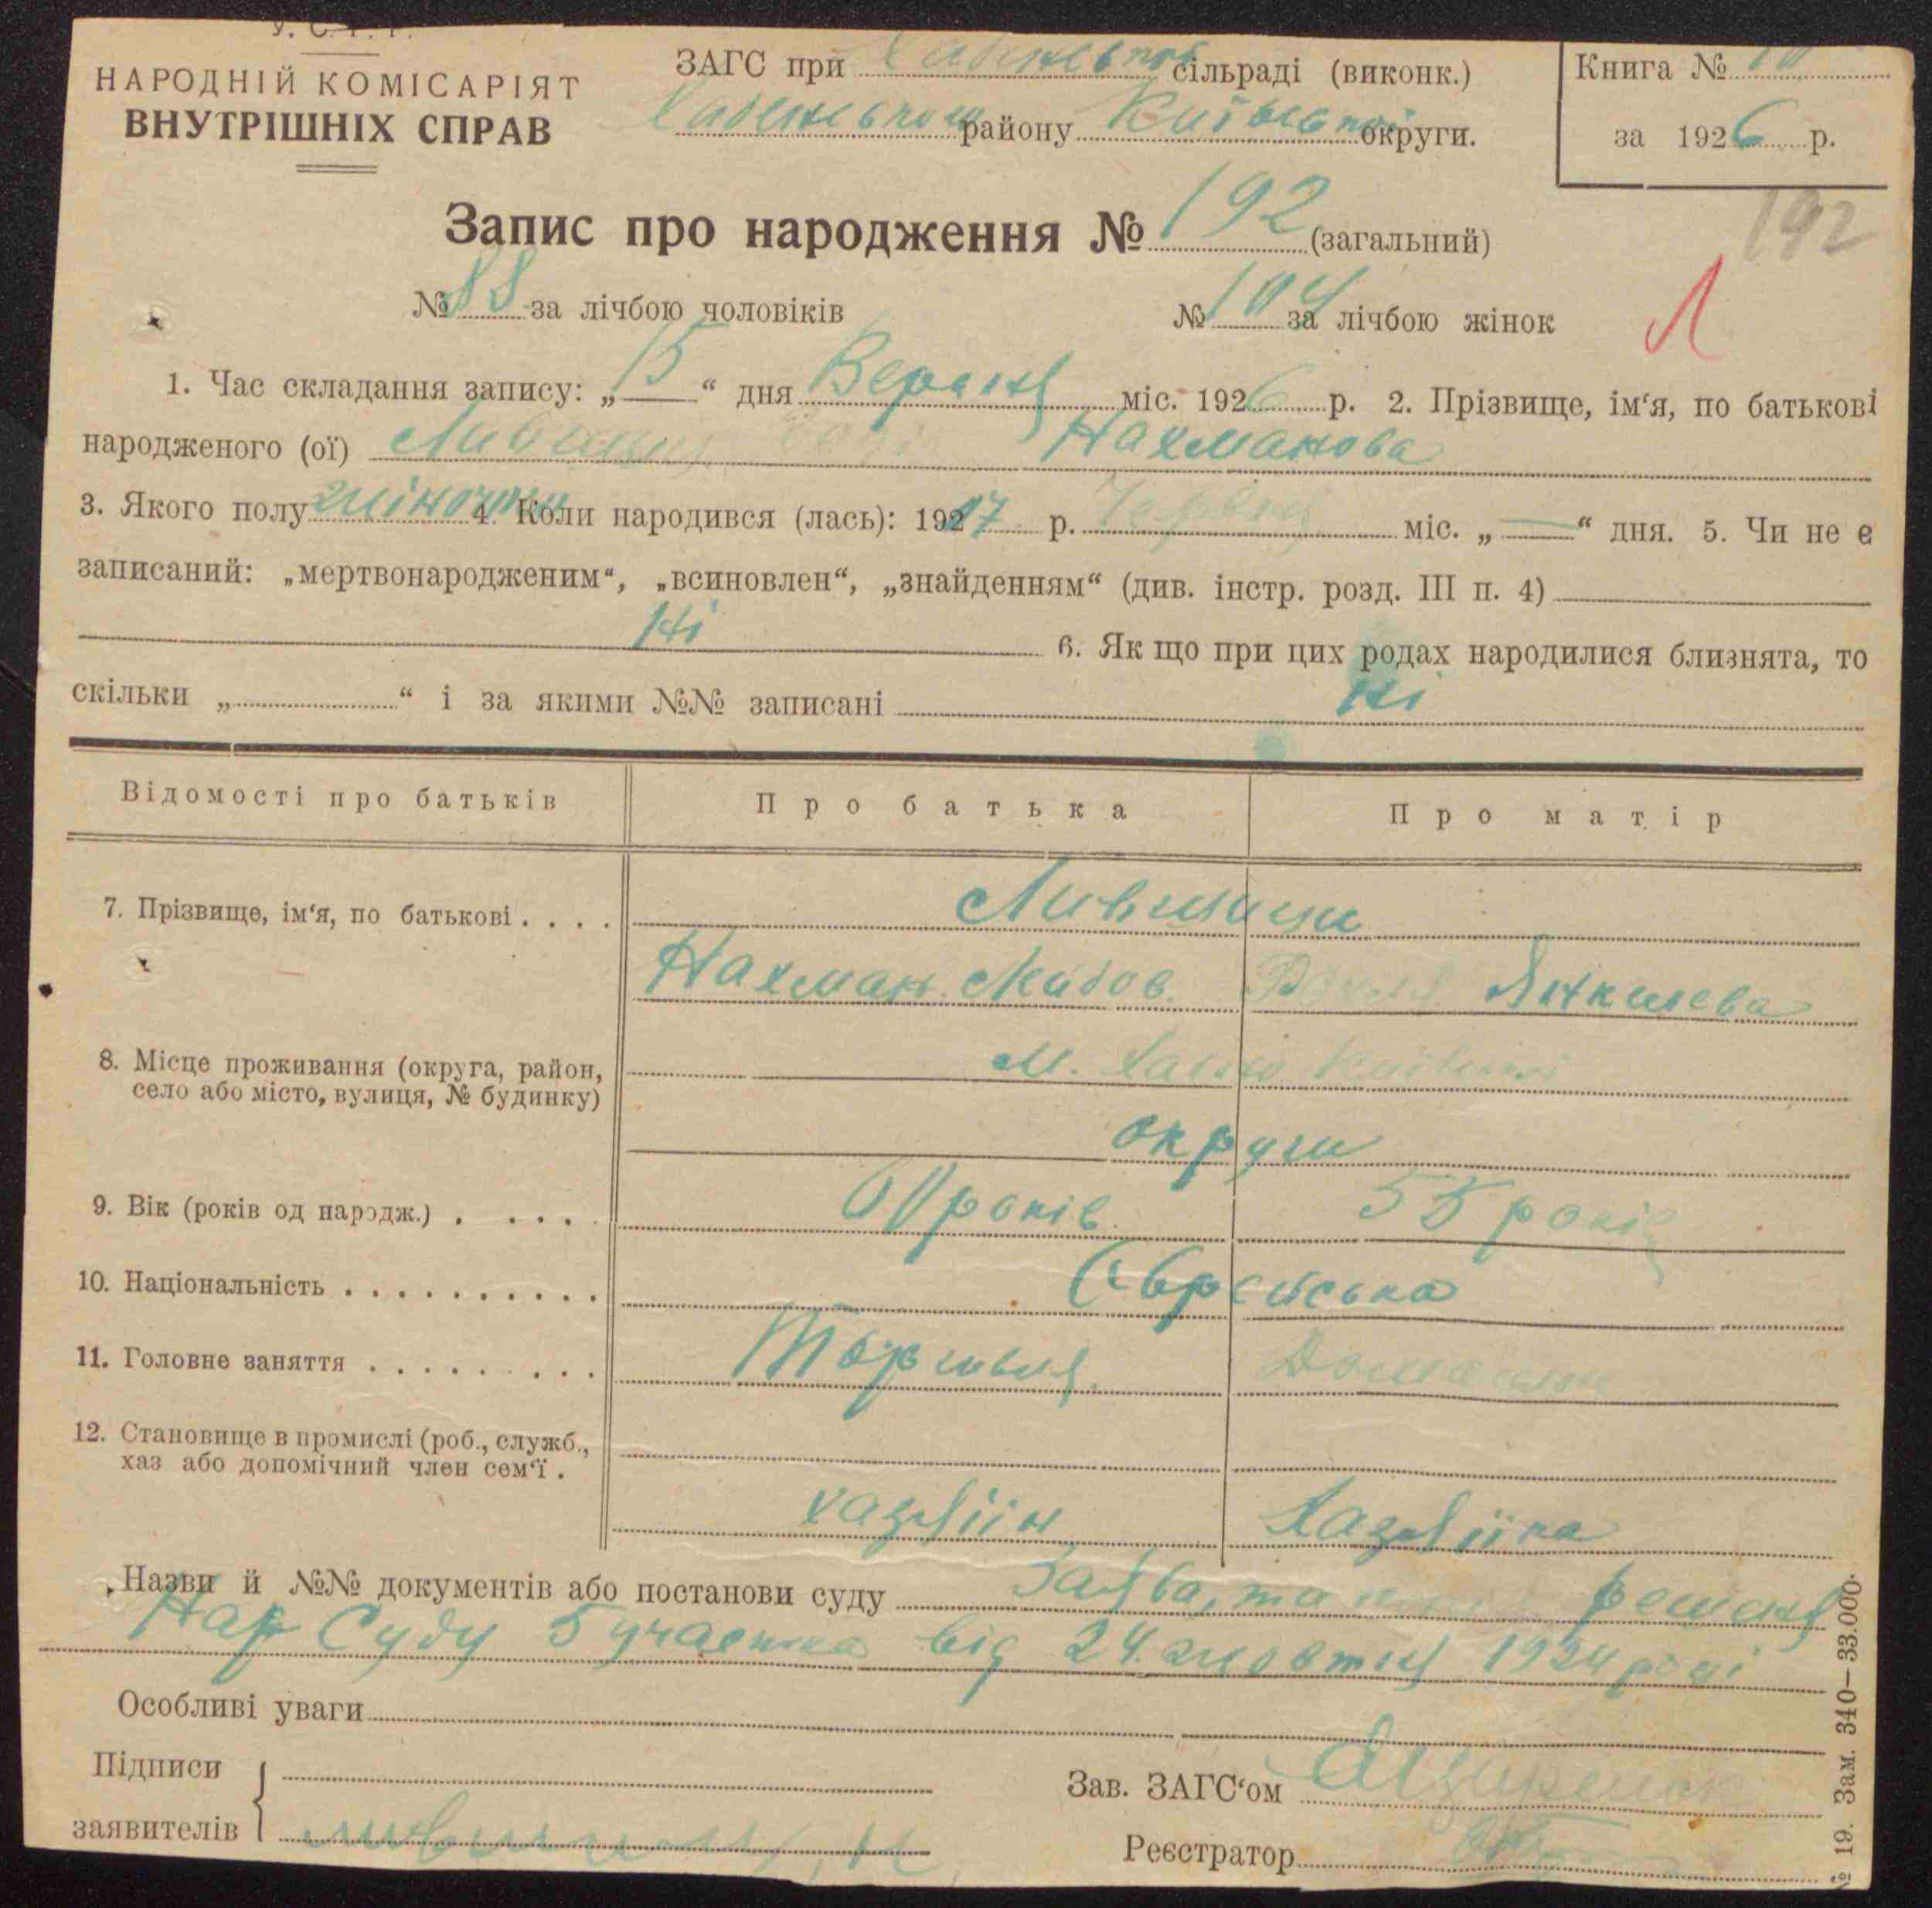 У. С. Р. Р.
НАРОДНІЙ КОМІСАРІЯТ
ВНУТРІШНІХ СПРАВ
ЗАГС при сільраді (виконк.)
району Київської округи.
Книга №
за 1926 р.
Запис про народження № 192 (загальний)
192
№ 88 за лічбою чоловіків № 104 за лічбою жінок
Л
1. Час складання запису: „15“ дня Вересня міс. 1926 р. 2. Прізвище, ім‘я, по батькові
народженого (ої) Лившиц Нахманова
3. Якого полу жіночий 4. Коли народився (лась): 1917 р. міс. „—“ дня. 5. Чи не є
записаний: „мертвонародженим“, „всиновлен“, „знайденням“ (див. інстр. розд. III п. 4)
Ні 6. Як що при цих родах народилися близнята, то
скільки „ “ і за якими №№ записані Ні
Відомості про батьків Про батька Про матір
7. Прізвище, ім‘я, по батькові . . . . Лившици
Нахман Янкилева
8. Місце проживання (округа, район,
село або місто, вулиця, № будинку)
округи
9. Вік (років од народж.) . . . . . років 55 років
10. Національність . . . . . . . . . . Єврейська
11. Головне заняття . . . . . . . . . Торгівля
12. Становище в промислі (роб., служб.,
хаз або допомічний член сем‘ї .
хазяїін Хазяїіка
Назви й №№ документів або постанови суду Заява, та решення
Нар Суду 5 участка від 24 жовтня 1924 року
Особливі уваги
Підписи
заявителів
Зав. ЗАГС‘ом
Реєстратор
№ 19. Зам. 340—33.000.